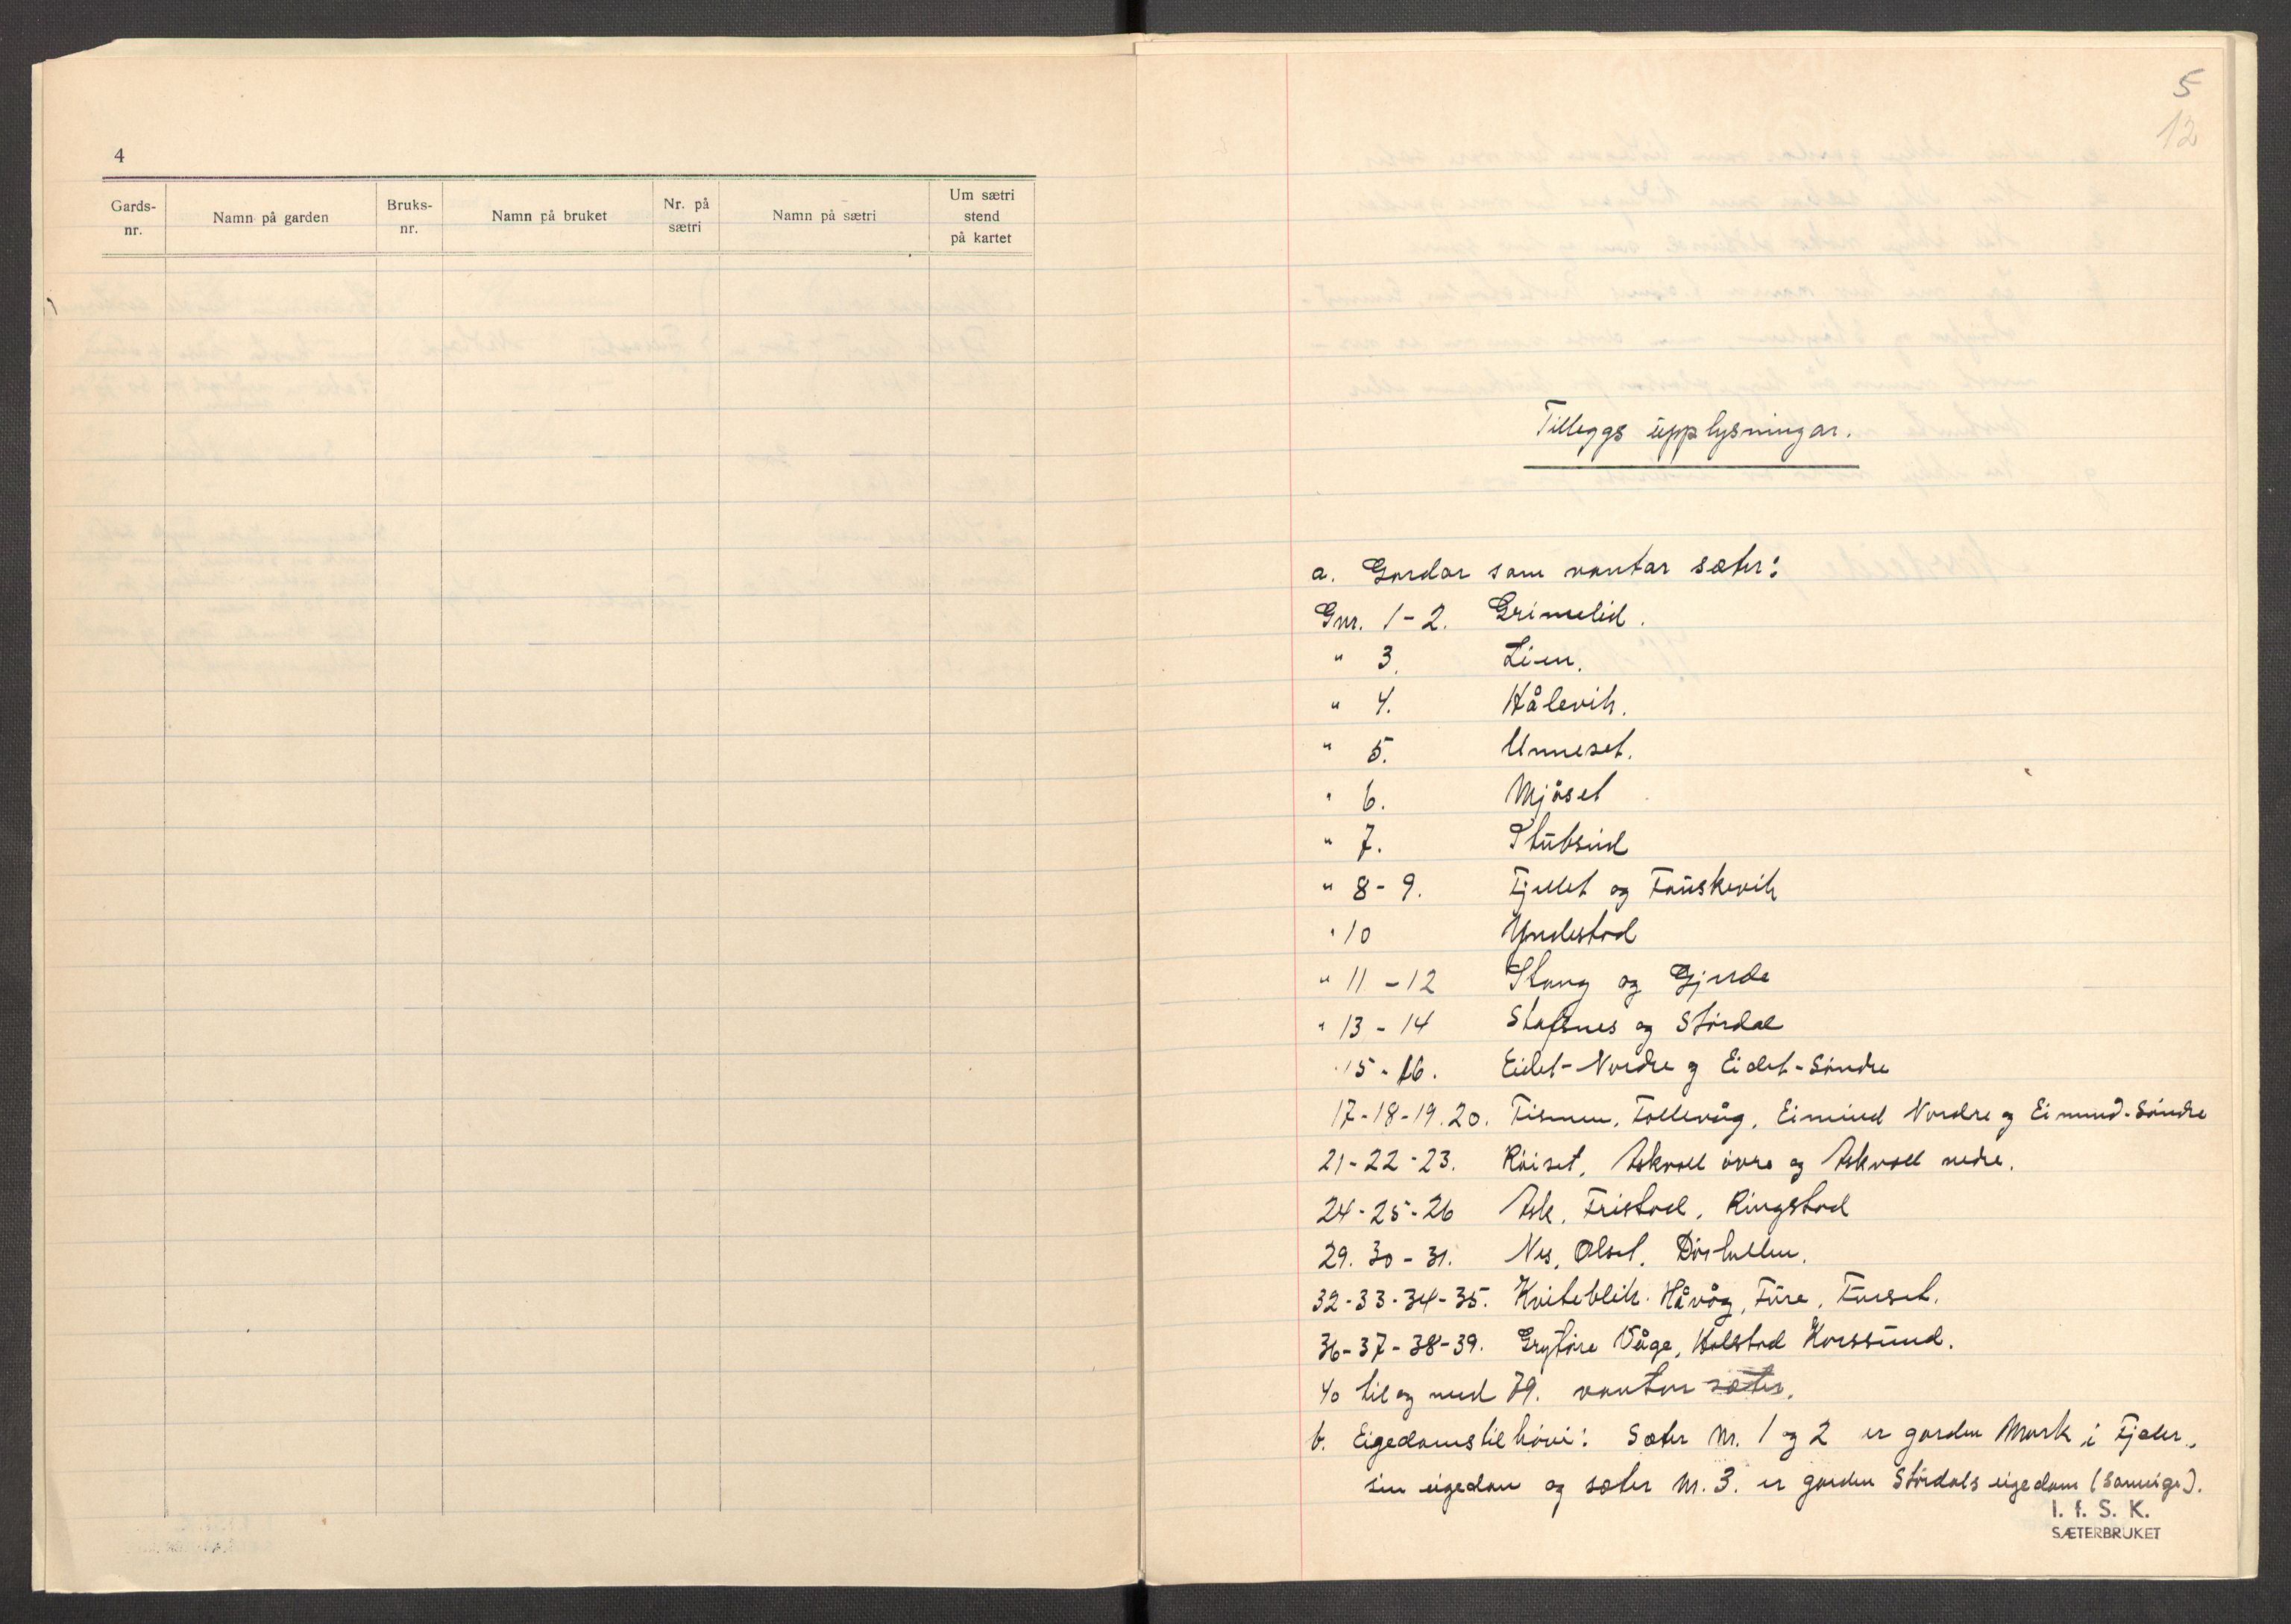 4
Gards-
nr.
Namn på garden
Bruks-
nr.
Namn på bruket
Nr. på
sætri
Namn på sætri
Um sætri
stend
på kartet
5
12
Tilleggs upplysningar.
a. Gardar som vantar sæter:
Gnr. 1-2. Grimelid.
" 3. Lien.
" 4. Hålevik.
" 5. Unneset.
" 6. Mjåset
" 7. Stubseid
" 8-9. Fjellet og Fauskevik
" 10 Yndestad
" 11-12 Stang og Gjerde
" 13-14 Stafsnes og Stördal
" 15-16. Eidet-Nordre og Eidet-Söndre
17-18-19.20. Tismen, Follevåg, Eimind Nordre og Eimind-Söndre
21-22-23. Röiset, Askvoll övre og Askvoll nedre.
24-25-26 Ask, Fristad, Ringstad
29. 30-31. Nes, Olset,
32-33-34-35. Kviteblik. Håvåg, Fure, Furset.
36-37-38-39. Grytöre Våge, Holstad Korssund.
40 til og med 79. vantar sæter.
b. Eigedomstilhöve: Sæter nr. 1 og 2 er garden Mork i Fjaler,
sin eigedom og sæter nr. 3. er garden Stördals eigedom (sameige).
I. f. S. K.
SÆTERBRUKET